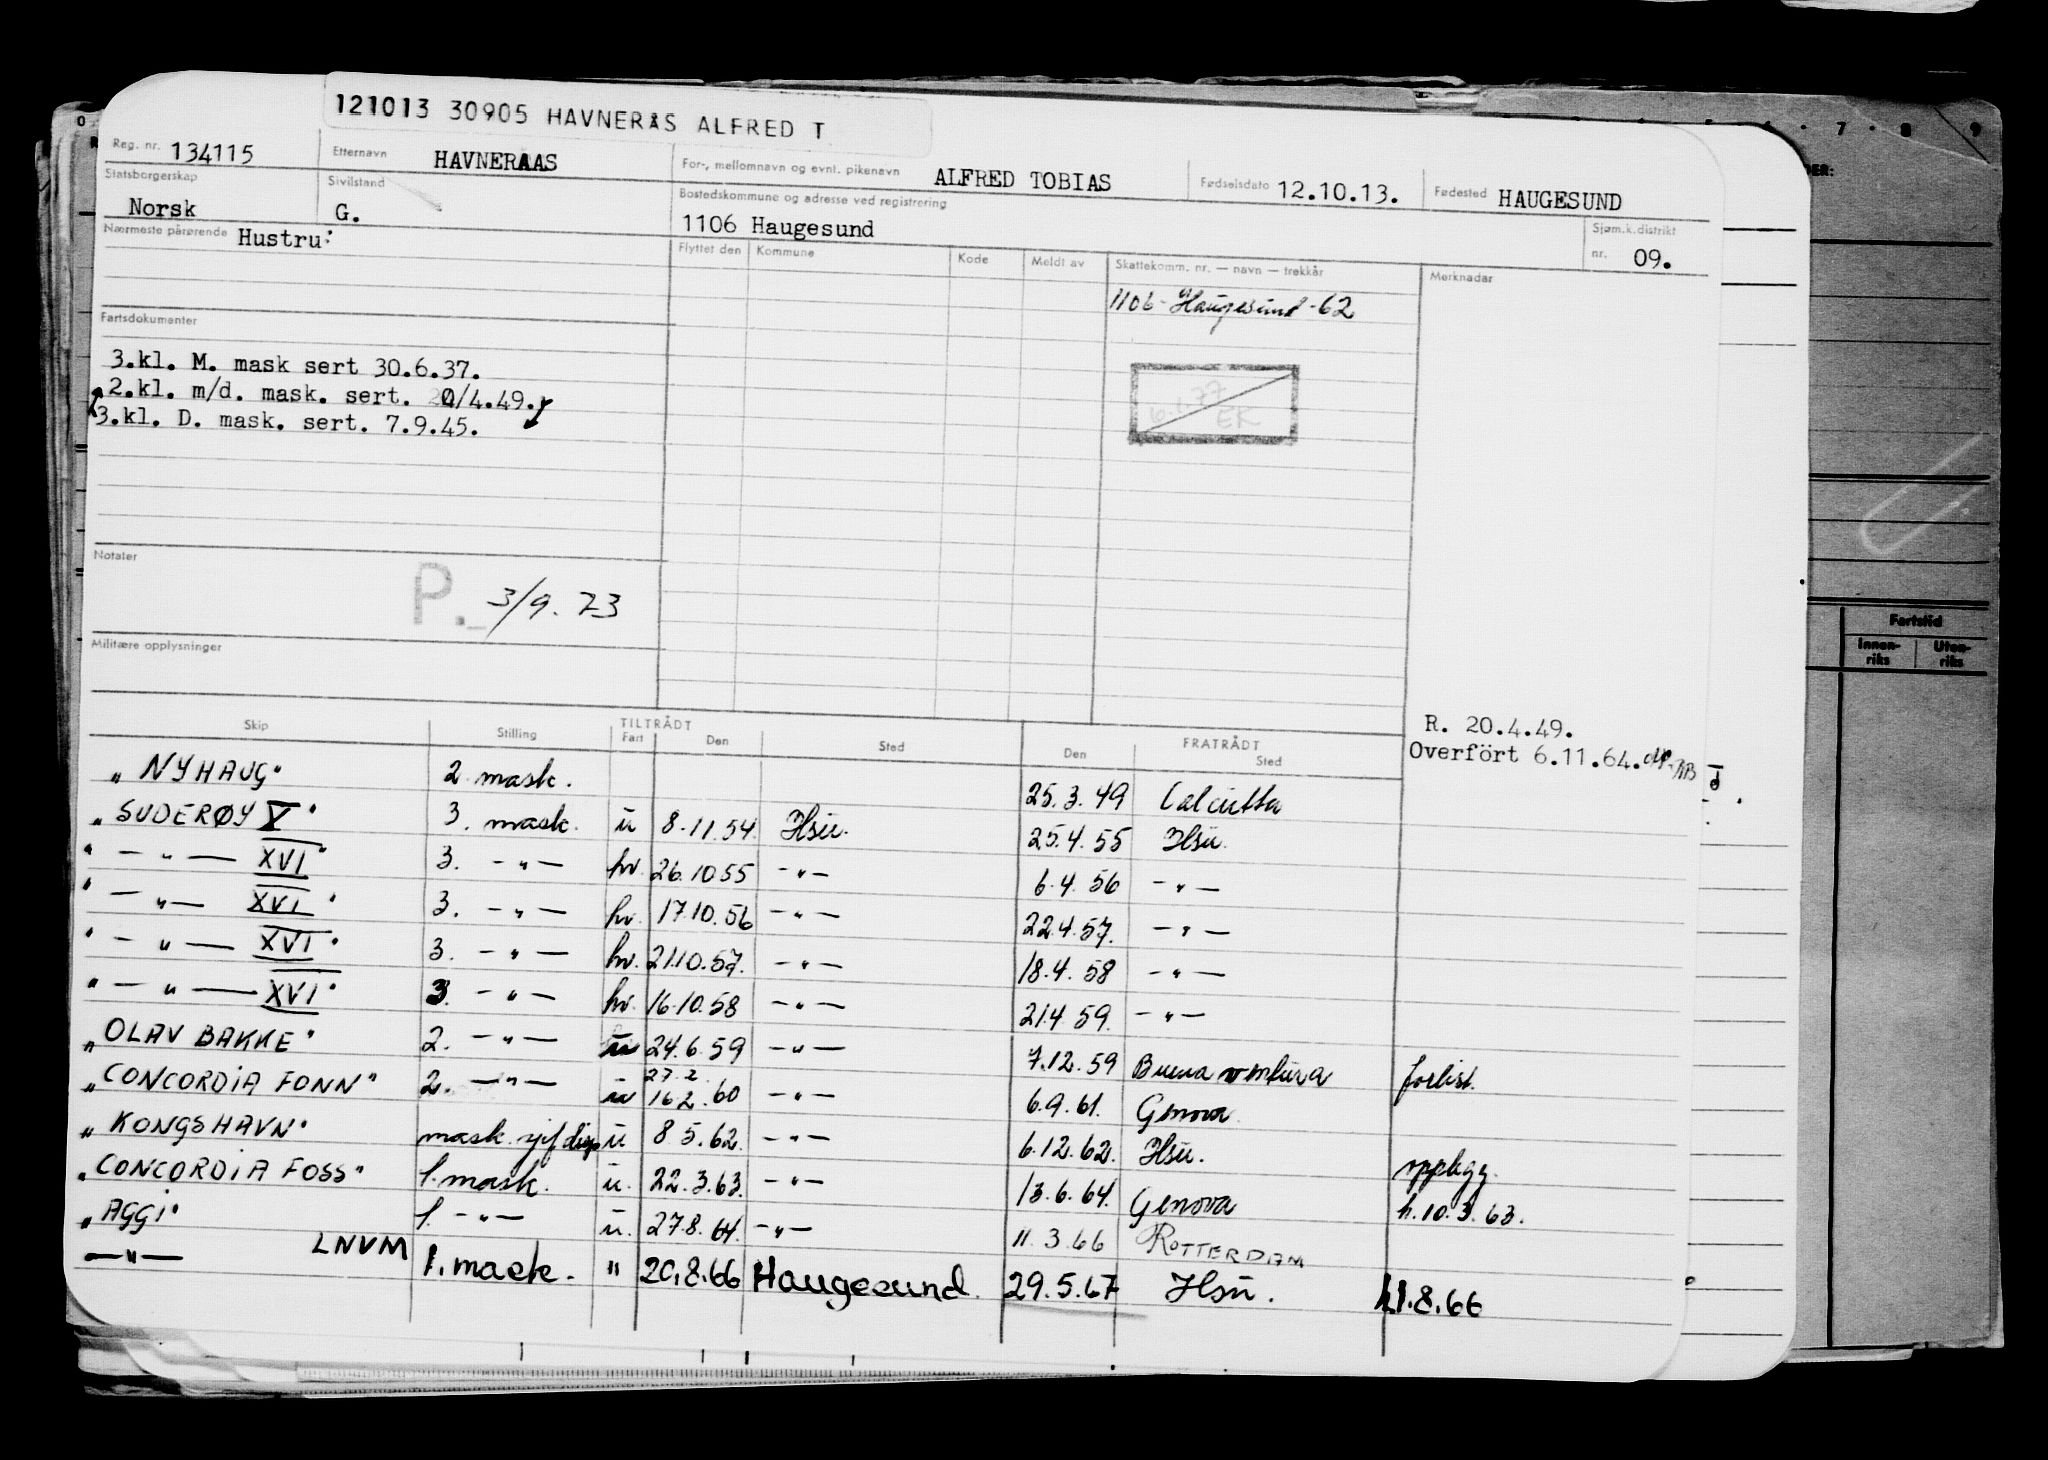 121013 30905 HAVNERÅS ALFRED T
Reg. nr. 134115 Etternavn HAVNERAAS For-, mellomnavn og evnt. pikenavn ALFRED TOBIAS Fødselsdato 12.10.13. Fødested HAUGESUND
Statsborgerskap Norsk Sivilstand G. Bostedskommune og adresse ved registrering 1106 Haugesund Sjøm.k.distrikt nr. 09.
Nærmeste pårørende Hustru:
Flyttet den Kommune Kode Meldt av Skattekomm. nr. — navn — trekkår Merknader
1106 - Haugesund - 62
Fartsdokumenter
3.kl. M. mask sert 30.6.37.
2.kl. m/d. mask. sert. 20/4.49.
3.kl. D. mask. sert. 7.9.45.
6.1.77
EK
Notater
P. 3/9. 73
Militære opplysninger
R. 20.4.49.
Overført 6.11.64.
Skip Stilling TILTRÅDT Fart Den Sted FRATRÅDT Den Sted
"NYHAUG" 2 mask. 25.3.49 Calcutta
"SUDERØY V" 3. mask. u 8.11.54. Hsu. 25.4.55 Hsu.
" — " — XVI" 3. — " — hv. 26.10 55 — " — 6.4.56 — " —
" — " — XVI" 3. — " — hv. 17.10.56 — " — 22.4.57. — " —
" — " — XVI" 3. — " — hv. 21.10.57. — " — 18.4.58 — " —
" — " — XVI" 3. — " — hv. 16.10.58 — " — 21.4.59. — " —
"OLAV BAKKE" 2. — " — u 24.6.59 — " — 7.12.59 Buenaventura forlist.
27.2.
"CONCORDIA FONN" 2. — " — u 16.2.60 — " — 6.9.61. Genova
"KONGSHAVN" mask. sjef disp u 8 5.62. — " — 6.12.62. Hsu. opplegg.
"CONCORDIA FOSS" 1. mask. u. 22.3.63. — " — 13.6.64. Genova h.10.3.63.
"AGGI" 1. — " — u. 27.8.64. — " — 11.3.66 ROTTERDAM
— " — LNVM 1. mask. " 20.8.66 Haugesund. 29.5.67 Hsu. 11.8.66
7 8 9
Fartstid
Innen-riks Uten-riks